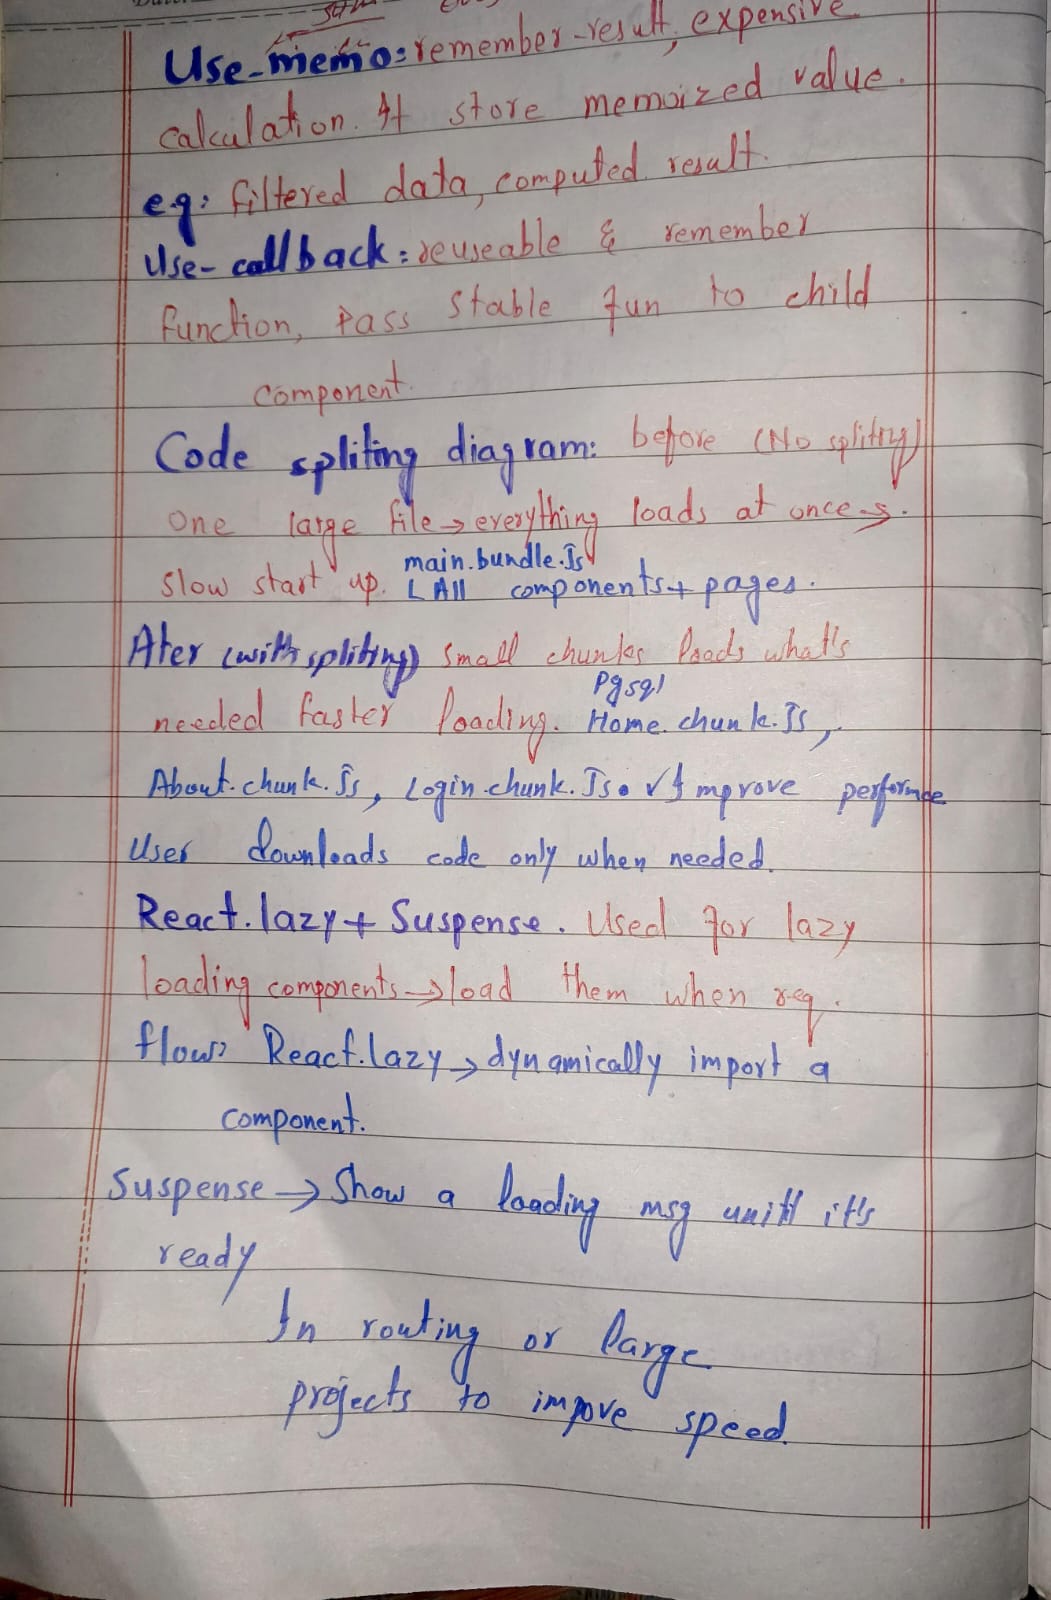 Use-memo: remember-result, expensive
calculation. It store memoized value.
e.g: filtered data, computed result.
Use-callback: reuseable & remember
function, pass stable fun to child
component.
Code spliting diagram: before (No spliting)
one large file → everything loads at once →.
slow start up. main.bundle.Js
L All components + pages.
Ater (with spliting) small chunks loads what's
needed faster loading. Pgsql
Home.chunk.Js,
About.chunk.Js, Login.chunk.Js. ✓ Improve performce
User downloads code only when needed.
React.lazy + Suspense. Used for lazy
loading components → load them when req.
flow: React.lazy → dynamically import a
component.
Suspense → Show a loading msg until it's
ready
In routing or large
projects to impove speed.